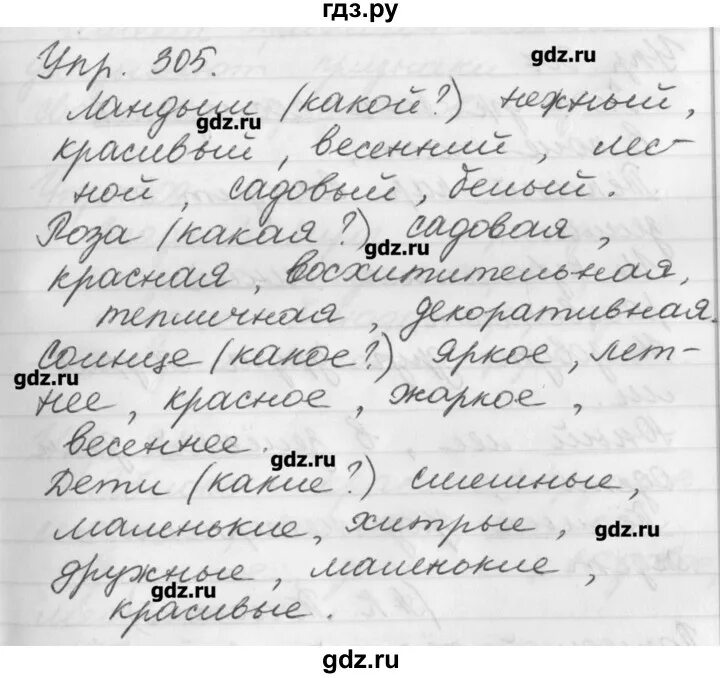 гдз.ру
Упр. 305.
gdz.ru
Ландыш (какой?) нежный,
gdz.ru
красивый, весенний, лес-
ной, садовый, белый.
Роза (какая?) садовая,
gdz.ru
красная, восхитительная,
тепличная, декоративная.
Солнце (какое?) яркое, лет-
gdz.ru
нее, красное, жаркое,
весеннее.
gdz.ru
Дети (какие?) смешные,
маленькие, хитрые,
gdz.ru
дружные, маленькие,
gdz.ru
красивые.
gdz.ru